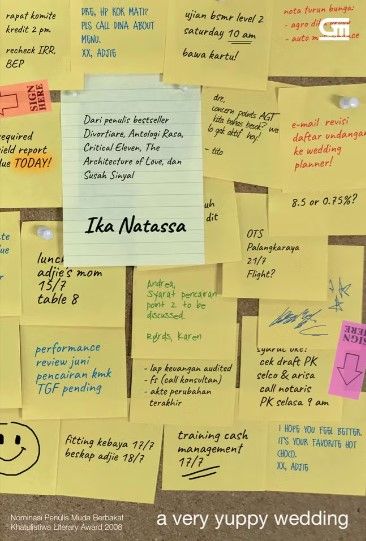 rapat komite
kredit 2 pm
recheck IRR,
BEP
DRE, HP KOK MATI?
PLS CALL DINA ABOUT
MENU.
XX, ADJIE
ujian bsmr level 2
saturday 10 am
bawa kartu!
nota turun bunga:
- agro di
- auto m
GM
SIGN
HERE
required
yield report
due TODAY!
Dari penulis bestseller
Divortiare, Antologi Rasa,
Critical Eleven, The
Architecture of Love, dan
Susah Sinyal
Ika Natassa
dre,
concern points AGT
kita bahas besok? we
- tito
e-mail revisi
daftar undangan
ke wedding
planner!
8.5 or 0.75%?
dit
lunch
adjie's mom
15/7
table 8
OTS
Palangkaraya
21/7
Flight?
Andrea,
Syarat pencairan
point 2 to be
discussed.
Rgrds, Karen
performance
review juni
pencairan kmk
TGF pending
- lap keuangan audited
- fs (call konsultan)
- akte perubahan
terakhir
cek draft PK
selco & arisa
call notaris
PK selasa 9 am
SIGN
HERE
fitting kebaya 17/7
beskap adjie 18/7
training cash
management
17/7
I HOPE YOU FEEL BETTER.
IT'S YOUR FAVORITE HOT
CHOCO.
XX, ADJIE
Nominasi Penulis Muda Berbakat
Khatulistiwa Literary Award 2008
a very yuppy wedding